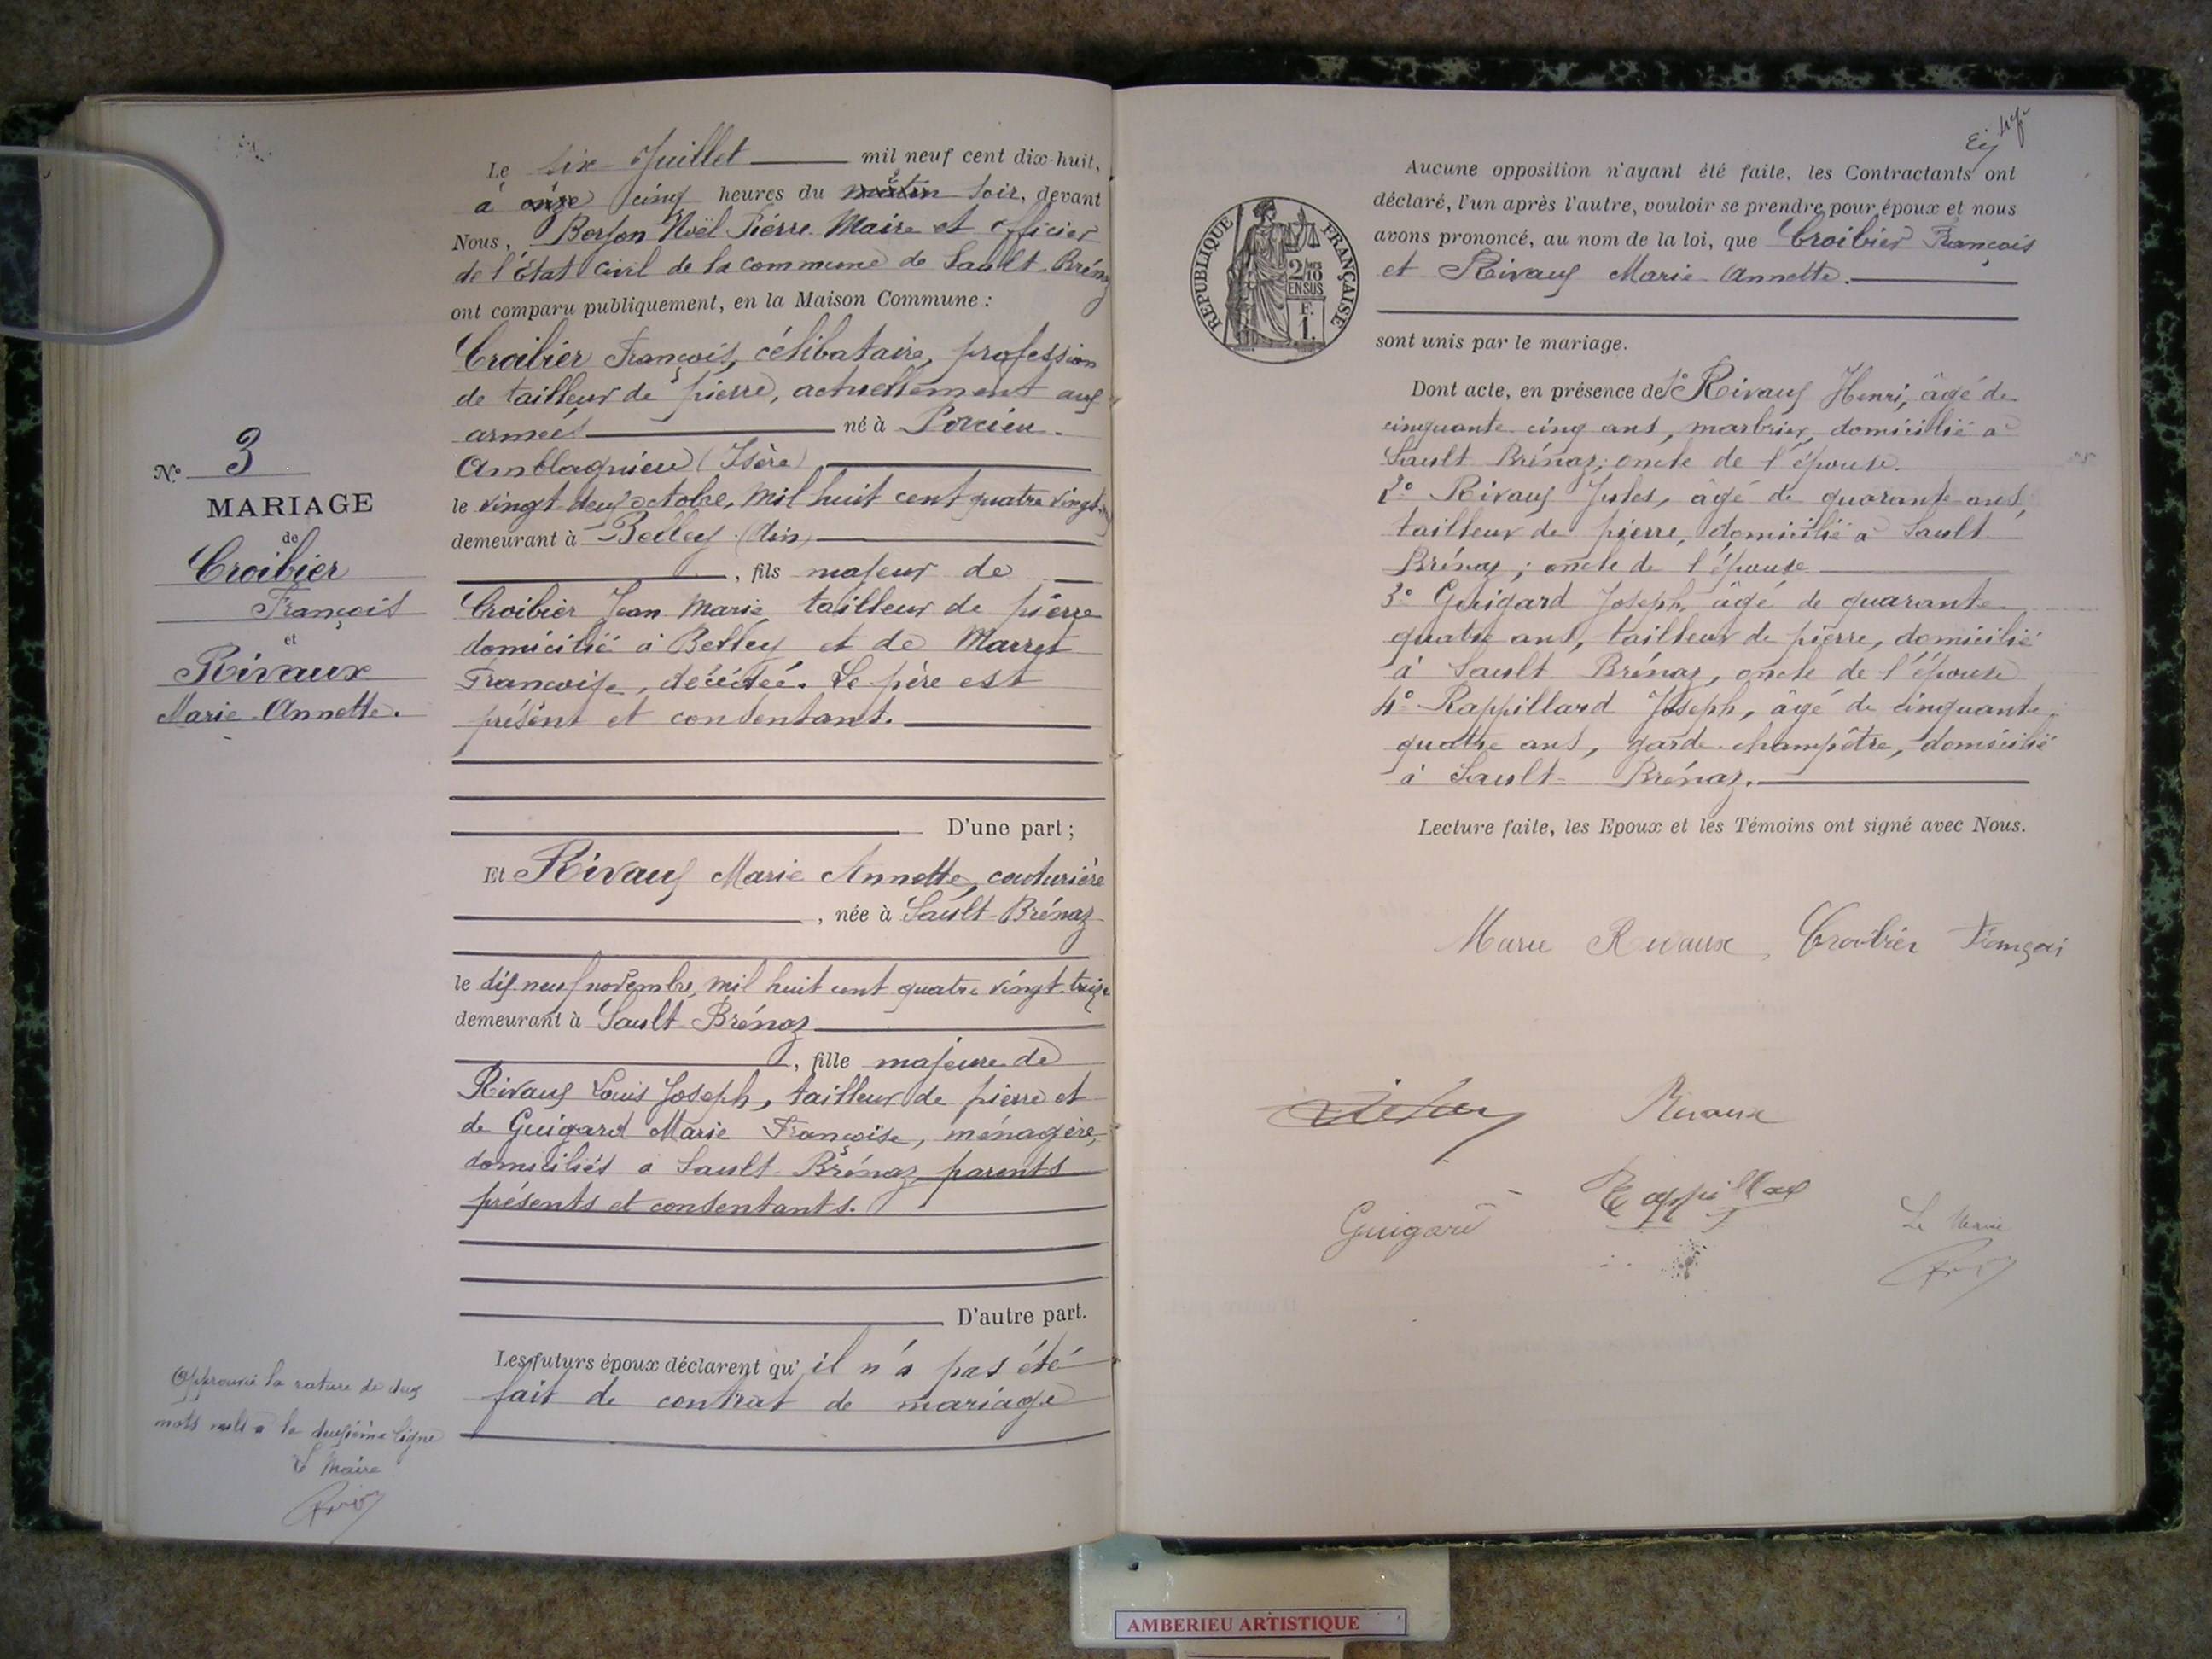 N° 3
MARIAGE
de
Croibier
François
et
Rivaux
Marie Annette.
Approuvé la rature de deux
mots nuls à la deuxième ligne
Le Maire
Le six Juillet mil neuf cent dix-huit,
à onze cinq heures du matin soir, devant
Nous, Noël Pierre Maire et officier
de l'État civil de la commune de Sault-Brénaz
ont comparu publiquement, en la Maison Commune :
Croibier François, célibataire, profession
de tailleur de pierre, actuellement aux
armées né à Porcieu-
Amblagnieu (Isère)
le vingt deux octobre, mil huit cent quatre vingt
demeurant à Belley (Ain)
, fils majeur de
Croibier Jean Marie, tailleur de pierre
domicilié à Belley et de Marret
Françoise, décédée. Le père est
présent et consentant.
D'une part ;
Et Rivaux Marie Annette, couturière
, née à Sault-Brénaz
le dix neuf novembre, mil huit cent quatre vingt treize
demeurant à Sault-Brénaz
, fille majeure de
Rivaux Louis Joseph, tailleur de pierre et
de Guigard Marie Françoise, ménagère,
domiciliés à Sault-Brénaz, parents
présents et consentants.
D'autre part.
Les futurs époux déclarent qu'il n'a pas été
fait de contrat de mariage
RÉPUBLIQUE FRANÇAISE
2/10
EN SUS
F.
1.
Aucune opposition n'ayant été faite, les Contractants ont
déclaré, l'un après l'autre, vouloir se prendre pour époux et nous
avons prononcé, au nom de la loi, que Croibier François
et Rivaux Marie-Annette.
sont unis par le mariage.
Dont acte, en présence de 1° Rivaux Henri, âgé de
cinquante cinq ans, marbrier, domicilié à
Sault Brénaz, oncle de l'épouse.
2° Rivaux Jules, âgé de quarante ans,
tailleur de pierre, domicilié à Sault
Brénaz ; oncle de l'épouse
3° Guigard Joseph, âgé de quarante
quatre ans, tailleur de pierre, domicilié
à Sault Brénaz, oncle de l'épouse
4° Rappillard Joseph, âgé de cinquante-
quatre ans, garde-champêtre, domicilié
à Sault-Brénaz.
Lecture faite, les Epoux et les Témoins ont signé avec Nous.
Marie Rivaux Croibier François
Rivaux
Rappillard
Guigard
Le Maire
AMBERIEU ARTISTIQUE